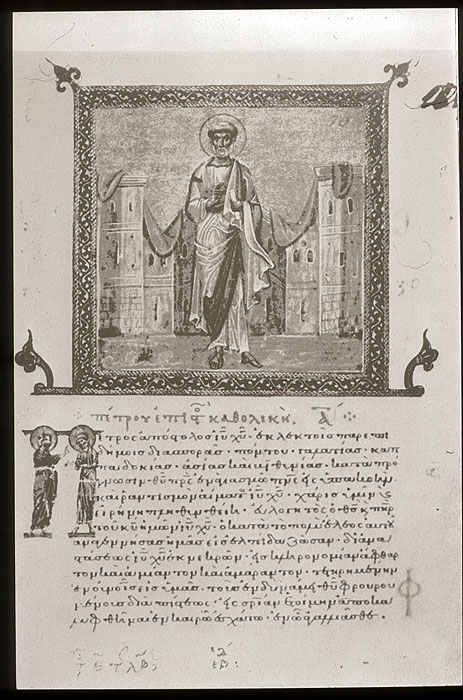 πέτρου ἐπιστ καθολικὴ Α
Πέτρος ἀπόστολος ἰυ χυ· ἐκλεκτοῖς παρεπι
δήμοις διασπορᾶς· πόντου· γαλατίας· καπ
παδοκίας· ἀσίας καὶ βιθυνίας· κατὰ πρό
γνωσιν θυ πρς ἐν ἁγιασμῶ πνς εἰς ὑπακοὴν
καὶ ῥαντισμὸν αἵματος ἰυ χυ· χάρις ὑμῖν ϗ
εἰρήνη πληθυνθείη· εὐλογητὸς ὁ θς ϗ πηρ
τοῦ κυ ἡμῶν ἰυ χυ· ὁ κατὰ τὸ πολὺ ἔλεος αὐτοῦ
ἀναγεννήσας ἡμᾶς εἰς ἐλπίδα ζῶσαν· δι' ἀνα
στάσεως ἰυ χυ ἐκ νεκρῶν· εἰς κληρονομίαν ἄφθαρ
τον καὶ ἀμίαντον καὶ ἀμάραντον· τετηρημένην
ἐν οὐνοῖς εἰς ὑμᾶς· τοὺς ἐν δυνάμει θυ φρουρου
μένους διὰ πίστεως· εἰς σρίαν ἑτοίμην ἀποκα
λυφθῆναι ἐν καιρῶ ἐσχάτω· ἐν ᾧ ἀγαλλιᾶσθε·